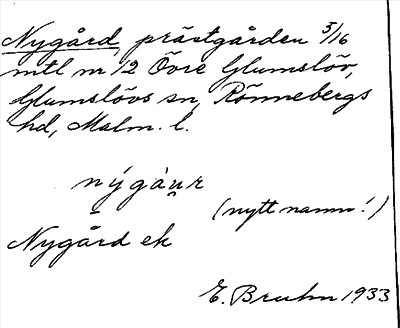 Nygård, prästgården 5/16
mtl nr 12 Övre Glumslöv,
Glumslövs sn, Rönnebergs
hd, Malm. l.
nýgàu̯r
(nytt namn!)
Nygård ek
E. Bruhn 1933